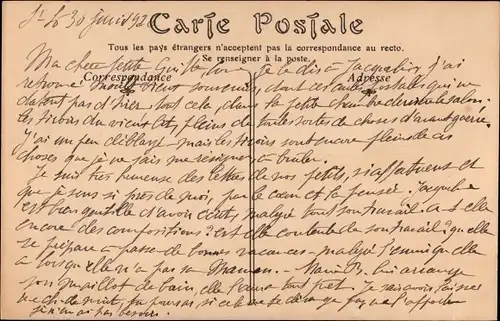 St Lô 30 juin 192
Carte Postale
Tous les pays étrangers n'acceptent pas la correspondance au recto.
Se renseigner à la poste.
Correspondance Adresse
Ma chère petite je le dis à j'ai
retrouvé vieux souvenirs dont ces cartes postales qui ne
datent pas d'hier, tout cela, dans la petite chambre derrière le salon.
les tiroirs du vieux pleins de toutes sortes de choses d'avant guerre.
J'ai un peu déblayé mais les tiroirs sont encore pleins de
choses que je ne sais me résigner à brûler.
Je suis très heureuse des lettres de nos petits, si affectueux et
que je sens si près de moi, par le cœur et la pensée.
est bien gentille d'avoir écrit, malgré tout son travail. a t elle
encore des compositions ? est elle contente de son travail ? qu'elle
se prépare à passer de bonnes vacances malgré l'ennui qu'elle
a lorsqu'elle n'a pas sa Maman. B. lui arrange
son maillot de bain, elle l'aura tout prêt. Je vais laisser
si cela ne te dérange pas
si n'en ai pas besoin.